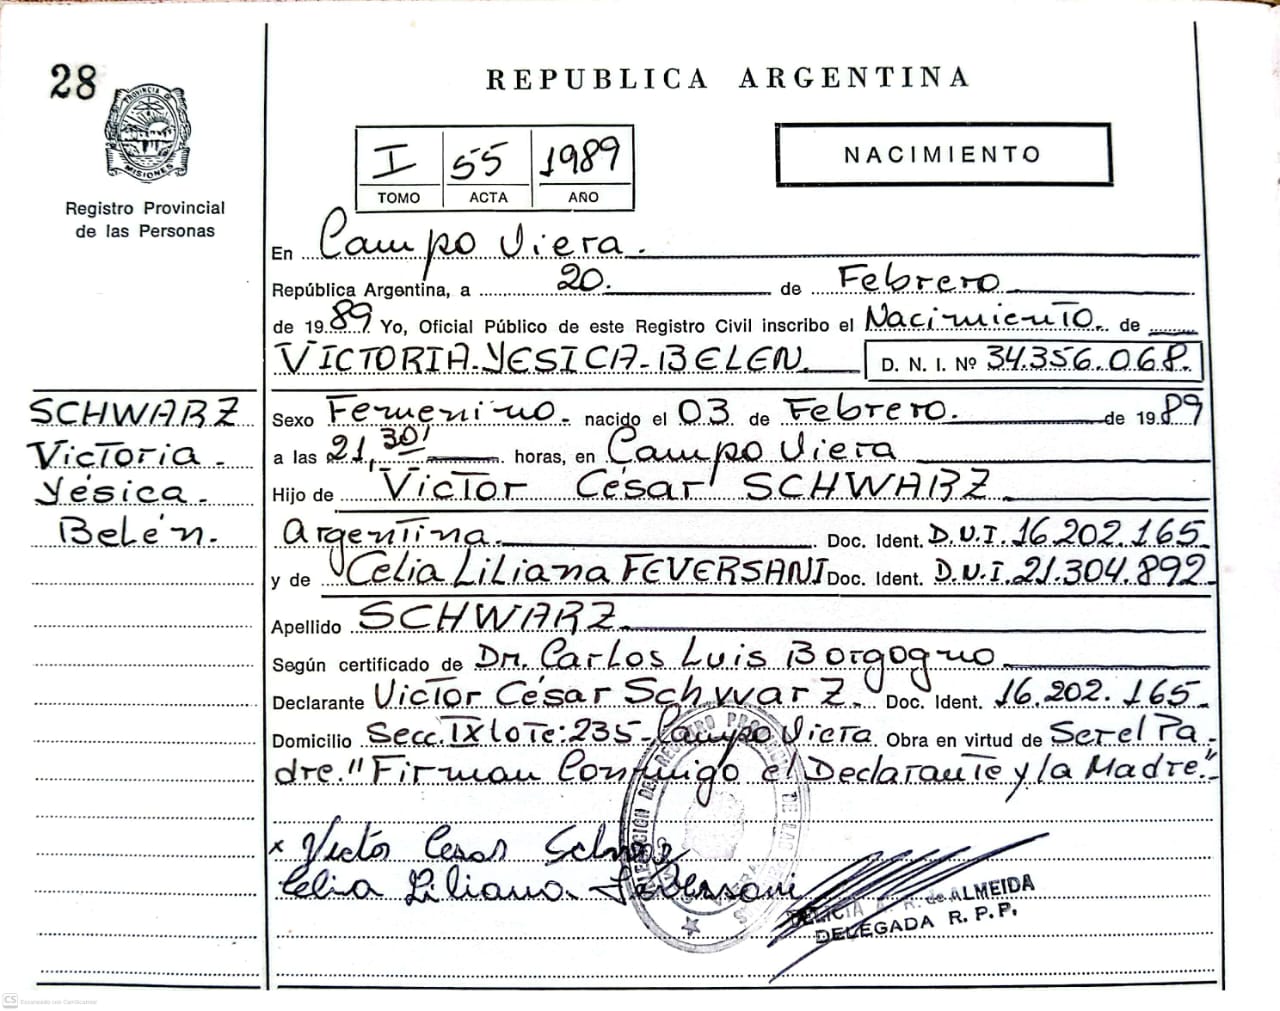 28
REPUBLICA ARGENTINA
PROVINCIA DE
MISIONES
Registro Provincial
de las Personas
I 55 1989
TOMO ACTA AÑO
NACIMIENTO
En Campo Viera.
República Argentina, a 20. de Febrero
de 1989 Yo, Oficial Público de este Registro Civil inscribo el Nacimiento de
VICTORIA YESICA BELEN D. N. I. Nº 34.356.068.
SCHWARZ
Victoria
Yésica
Belén.
Sexo Femenino. nacido el 03 de Febrero. de 1989
a las 21,30' horas, en Campo Viera
Hijo de Victor César SCHWARZ
Argentina. Doc. Ident. D.U.I. 16.202.165
y de Celia Liliana FEVERSANI Doc. Ident. D.U.I. 21.304.892
Apellido SCHWARZ
Según certificado de Dr. Carlos Luis Borgogno
Declarante Victor César Schwarz. Doc. Ident. 16.202.165
Domicilio Secc. IX Lote: 235 Campo Viera Obra en virtud de Ser el Pa-
dre. "Firman Conmigo el Declarante y la Madre."
x Victor Cesar
Celia Liliana
A. R. de ALMEIDA
DELEGADA R. P. P.
CS Escaneado con CamScanner